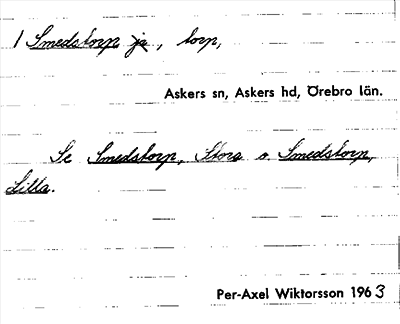 1 Smedstorp ja, torp,
Askers sn, Askers hd, Örebro län.
Se Smedstorp, Stora o. Smedstorp,
Lilla.
Per-Axel Wiktorsson 1963